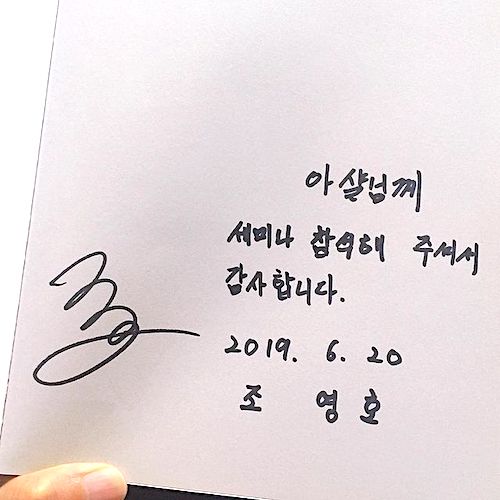 아샬님께
세미나 참석해 주셔서
감사합니다.
2019. 6. 20
조 영호